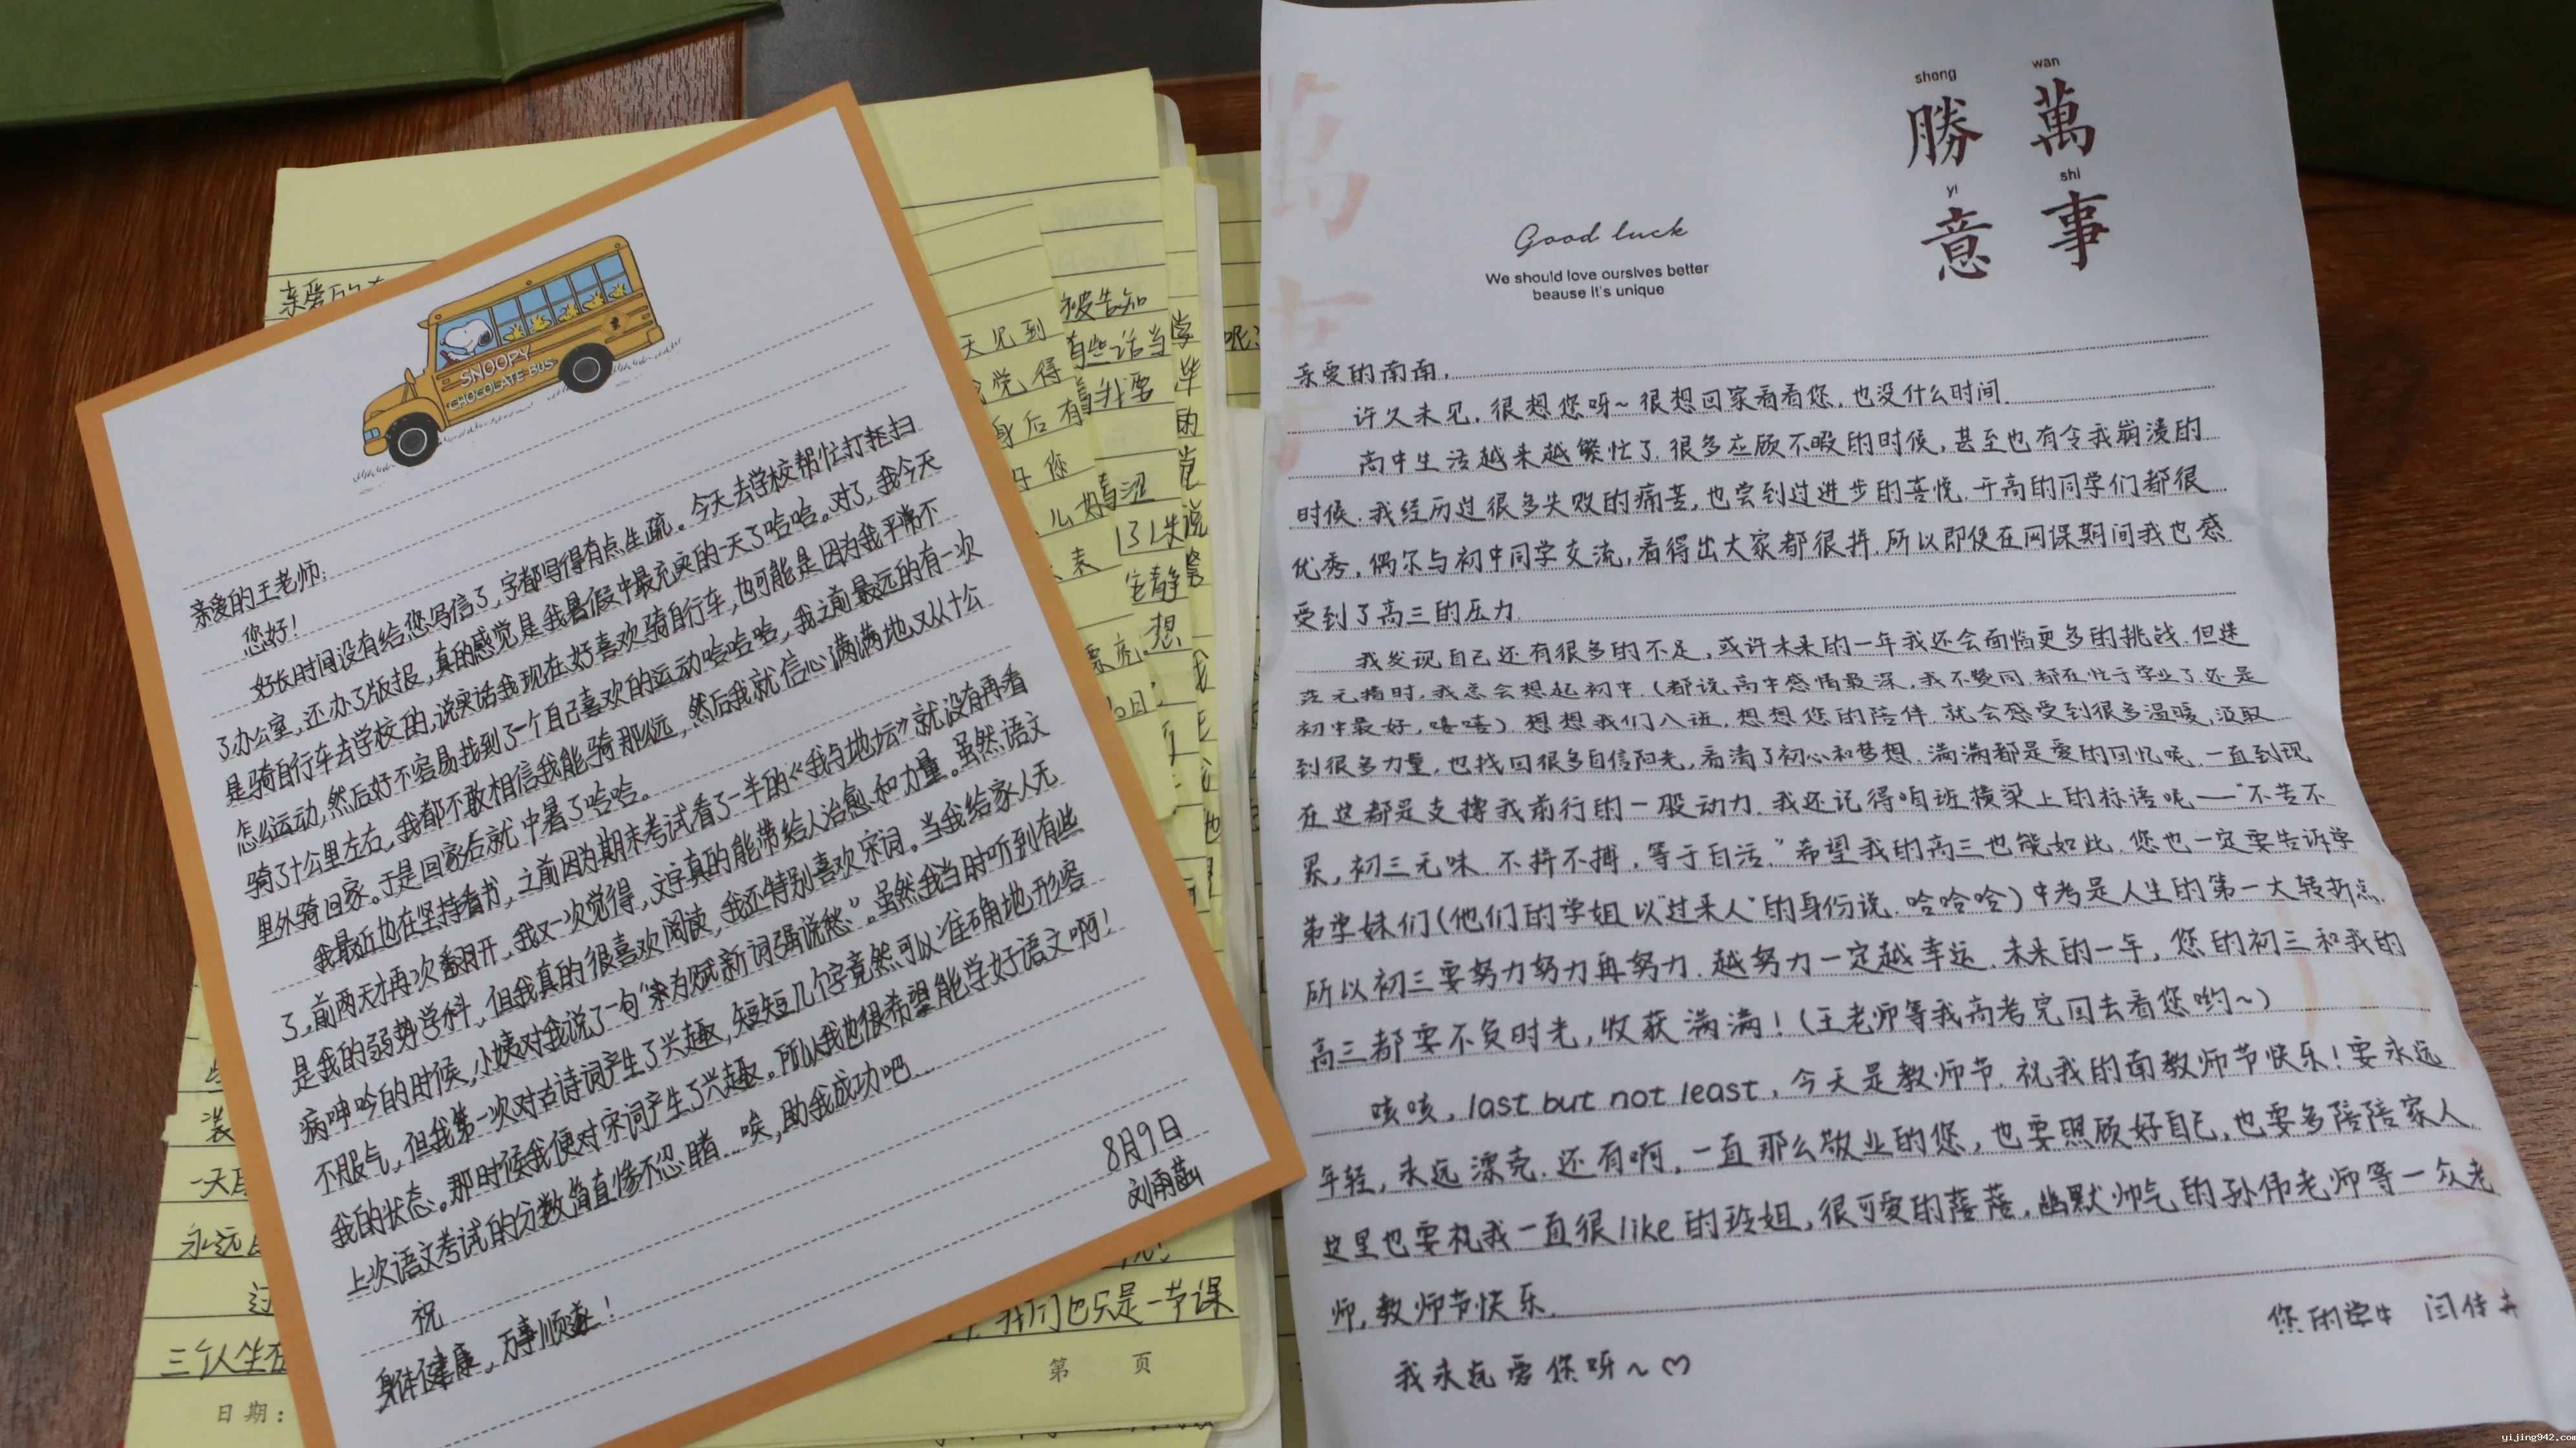 SNOOPY
CHOCOLATE BUS
亲爱的王老师:
您好!
好长时间没有给您写信了,字都写得有点生疏。今天去学校帮忙打扫
了办公室,还办了版报,真的感觉是我暑假中最充实的一天了哈哈。对了,我今天
是骑自行车去学校的,说实话我现在好喜欢骑自行车,也可能是因为我平常不
怎么运动,然后好不容易找到了一个自己喜欢的运动哈哈哈,我之前最远的有一次
骑了十公里左右,我都不敢相信我能骑那么远,然后我就信心满满地又从十公
里外骑回家。于是回家后就中暑了哈哈。
我最近也在坚持看书,之前因为期末考试看了一半的《我与地坛》就没有再看
了,前两天才再次翻开,我又一次觉得,文字真的能带给人治愈和力量。虽然语文
是我的弱势学科,但我真的很喜欢阅读,我还特别喜欢宋词。当我给家人无
病呻吟的时候,小姨对我说了一句“为赋新词强说愁”。虽然我当时听到有些
不服气,但我第一次对古诗词产生了兴趣,短短几个字竟然可以准确地形容
我的状态。那时候我便对宋词产生了兴趣。所以我也很希望能学好语文啊!
上次语文考试的分数简直惨不忍睹……唉,助我成功吧……
祝
身体健康,万事顺遂!
8月9日
刘雨菡
亲爱的
天见到
觉得
身后有
被告知
有些话当
着我要
想
一天
永远
三个人生在
我们也只是一节课
第 页
日期:
wan
萬
shi
事
sheng
勝
yi
意
Good luck
We should love ourslves better
beause it's unique
亲爱的南南,
许久未见,很想您呀~很想回家看看您,也没什么时间.
高中生活越来越繁忙了.很多应顾不暇的时候,甚至也有令我崩溃的
时候.我经历过很多失败的痛苦,也尝到过进步的喜悦.开高的同学们都很
优秀,偶尔与初中同学交流,看得出大家都很拼.所以即使在网课期间我也感
受到了高三的压力.
我发现自己还有很多的不足,或许未来的一年我还会面临更多的挑战.但迷
茫无措时,我总会想起初中.(都说高中感情最深,我不赞同.都在忙于学业了.还是
初中最好,嘻嘻)想想我们八班,想想您的陪伴.就会感受到很多温暖,汲取
到很多力量,也找回很多自信阳光,看清了初心和梦想.满满都是爱的回忆呢.一直到现
在这都是支撑我前行的一股动力.我还记得咱班横梁上的标语呢——“不苦不
累,初三无味.不拼不搏,等于白活.”希望我的高三也能如此.您也一定要告诉学
弟学妹们(他们的学姐以“过来人”的身份说.哈哈哈)中考是人生的第一大转折点.
所以初三要努力努力再努力.越努力一定越幸运.未来的一年,您的初三和我的
高三都要不负时光,收获满满!(王老师等我高考完回去看您哟~)
咳咳,last but not least,今天是教师节.祝我的南教师节快乐!要永远
年轻,永远漂亮.还有啊,一直那么敬业的您,也要照顾好自己,也要多陪陪家人
这里也要祝我一直很like的玲姐,很可爱的蓓蓓,幽默帅气的孙伟老师等一众老
师,教师节快乐.
您的学生 闫佳
我永远爱你呀~♡
yijing942.com